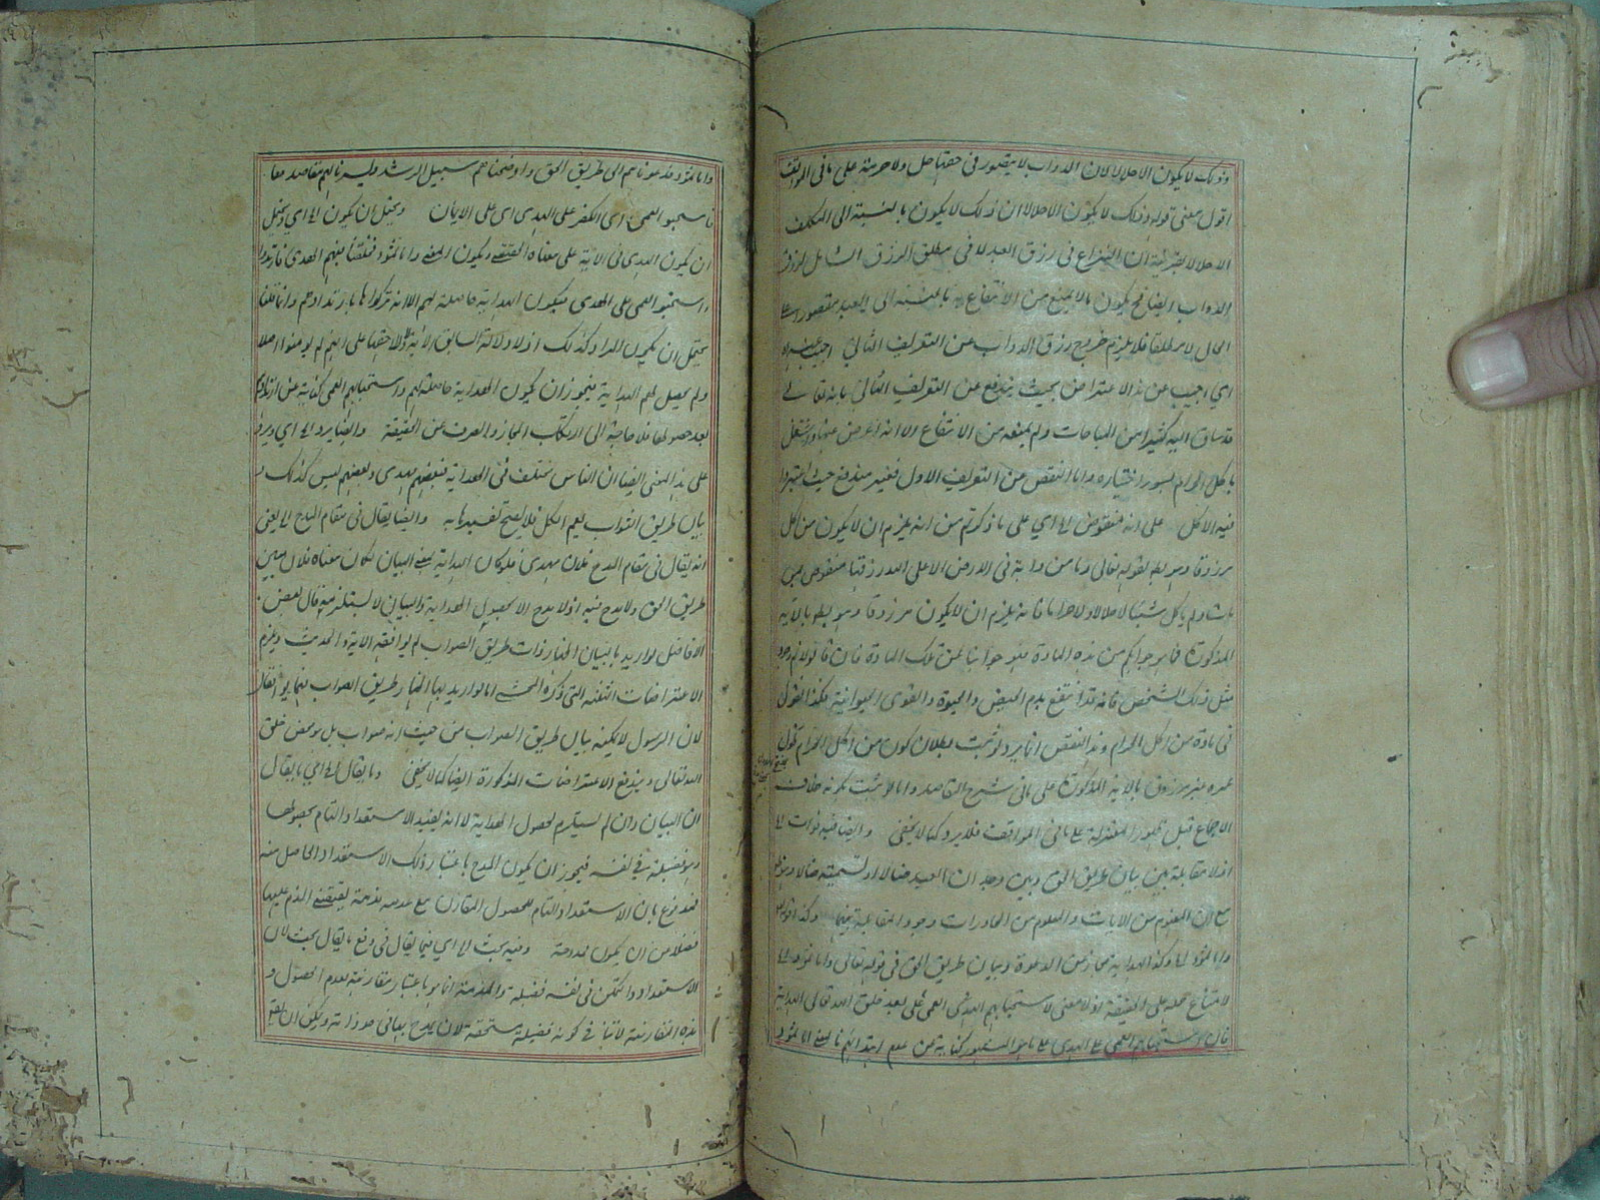 وذلك لا يكون الا حلالا لان الدواب لا يتصور في حقها حل ولا حرمة على ما في المواقف
اقول معنى قوله وذلك لا يكون الا حلالا ان ذلك لا يكون بالنسبة الى المكلف
الا حلالا لقرينة ان النزاع في رزق العبد لا في مطلق الرزق الشامل لرزق
الدواب ايضا فح يكون بالا يمنع من الانتفاع به بالنسبة الى العبد مقصورا على
الحلال لا مطلقا فلا يلزم خروج رزق الدواب عن التعريف الثاني اجيب عنه
اي اجيب عن هذا الاعتراض بحيث يندفع عن التعريف الثاني بانه تعالى
قد ساق اليه كثيرا من المباحات ولم يمنعه من الانتفاع الا انه اعرض عنها واشتغل
باكل الحرام لسوء اختياره واما النقض عن التعريف الاول فغير مندفع حيث اعتبروا
فيه الاكل على انه منقوض اي على ما ذكرتم من انه يلزم ان لا يكون من اكل
مرزوقا وهو بط لقوله تعالى وما من دابة في الارض الا على الله رزقها منقوض بمن
مات ولم ياكل شيئا لا حلالا ولا حراما فانه يلزم ان لا يكون مرزوقا وهو بط بالاية
المذكورة فما هو جوابكم من هذه المادة فهو جوابنا عن تلك المادة فان قالوا لا نم وجود
مثل ذلك الشخص فانه قد انتفع بدم الحيض والحيوة والقوى الحيوانية فكذا نقول
في مادة من اكل الحرام وهذا النقض انما يرد لو ثبت بطلان كون من اكل الحرام طول
عمره غير مرزوق بالاية المذكورة على ما في شرح المقاصد واما لو ثبت بكونه خلاف
الاجماع قبل ظهور المعتزلة على ما في المواقف فلا يرد كما لا يخفى وايضا فيه فوات
اذ لا مقابلة بين بيان طريق الحق وبين وجدان العبد ضالا او تسميته ضالا
مع ان المفهوم من الايات والمعلوم من المحاورات وجود المقابلة بينهما
وكذا الهداية مجاز من الدعوة وبيان طريق الحق في قوله تعالى واما ثمود
لامتناع حمله على الحقيقة اذ لا معنى لاستحبابهم العمى على بعد خلق الله تعالى الهداية
فان استحبابهم العمى على الهدى كناية عن عدم اهتدائهم
واما ثمود فدعوناهم الى طريق الحق واوضحناهم سبيل الرشد مقاصد
فاستحبوا العمى اي الكفر على الهدى اي على الايمان ويحتمل ان يكون اي ويحتمل
ان يكون الهدى في الاية على معناه الحقيقي ويكون المعنى واما ثمود فخلقنا فيهم الهدى فارتدوا
واستحبوا العمى على الهدى فيكون الهداية حاصلة لهم الا انه تركوا بارتدادهم وانما قلنا
يحتمل ان يكون المراد كذلك اذ لا دلالة السابق الاية ولا لاحقها على انهم لم يومنوا اصلا
ولم يحصل لهم الهداية فيجوز ان يكون الهداية حاصلة لهم واستحبابهم العمى كناية عن ارتدادهم
بعد حصولها فلا حاجة الى ارتكاب المجاز والصرف عن الحقيقة وايضا يرد اي ويرد
على هذا المعنى ايضا ان الناس مختلف في الهداية فبعضهم مهدي وبعضهم ليس كذلك
بيان طريق الثواب يعم الكل فلا يصح تفسيرها به وايضا يقال في مقام المدح يعني
انه يقال في مقام المدح فلان مهدي فلو كان الهداية بمعنى البيان لكان معناه فلان مبين
طريق الحق ولا مدح فيه اذ لا مدح الا بحصول الهداية والبيان لا يستلزمه قال بعض
الافاضل لو اريد بالبيان اظهار ذات طريق الصواب لم يوافقه الاية والحديث ويلزم
الاعتراضات الثلثة التي ذكره المحشي اما لو اريد بها اظهار طريق الصواب
لان الرسول لا يمكنه بيان طريق الصواب من حيث انه صواب بل هو محض خلق
الله تعالى ويندفع الاعتراضات المذكورة ايضا كما لا يخفى وما يقال اي ما يقال
ان البيان وان لم يستلزم لحصول الهداية الا انه يفيد الاستعداد التام لحصولها
وهو فضيلة في نفسه فيجوز ان يكون المدح باعتبار ذلك الاستعداد الحاصل منه
فمدفوع بان الاستعداد التام للحصول المقارن مع عدمه مذمة يقتضي الذم عليها
فضلا من ان يكون ممدوحة وفيه بحث اي فيما يقال في دفع ما يقال بحث لان
الاستعداد والتمكن في نفسه فضيلة والمذمة انما هو باعتبار مقارنته بعدم الحصول و
هذه المقارنة لا تنافي كونه فضيلة مستحقة لان يمدح بها في حد ذاته ويمكن ان يقال